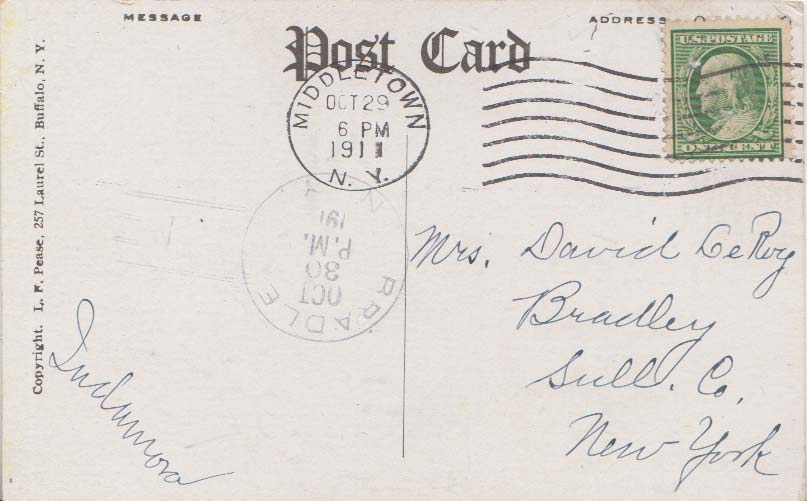 MESSAGE
ADDRESS
Post Card
U.S. POSTAGE
ONE CENT
MIDDLETOWN
OCT 29
6 PM
1911
N. Y.
BRADLE
OCT
30
P.M.
191
Mrs. David LeRoy
Bradley
Sull. Co,
New York
Copyright. L. F. Pease, 257 Laurel St., Buffalo, N. Y.